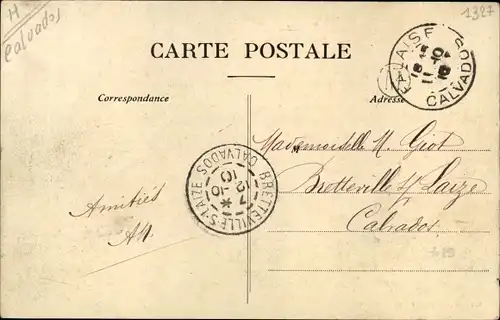 H
Calvados
1327
CARTE POSTALE
Correspondance
Adresse
FALAISE
CALVADOS
BRETTEVILLE-S-LAIZE
CALVADOS
7 *
12-10
10
Mademoiselle M. Giot
Bretteville s/ Laize
Calvados
Amitiés